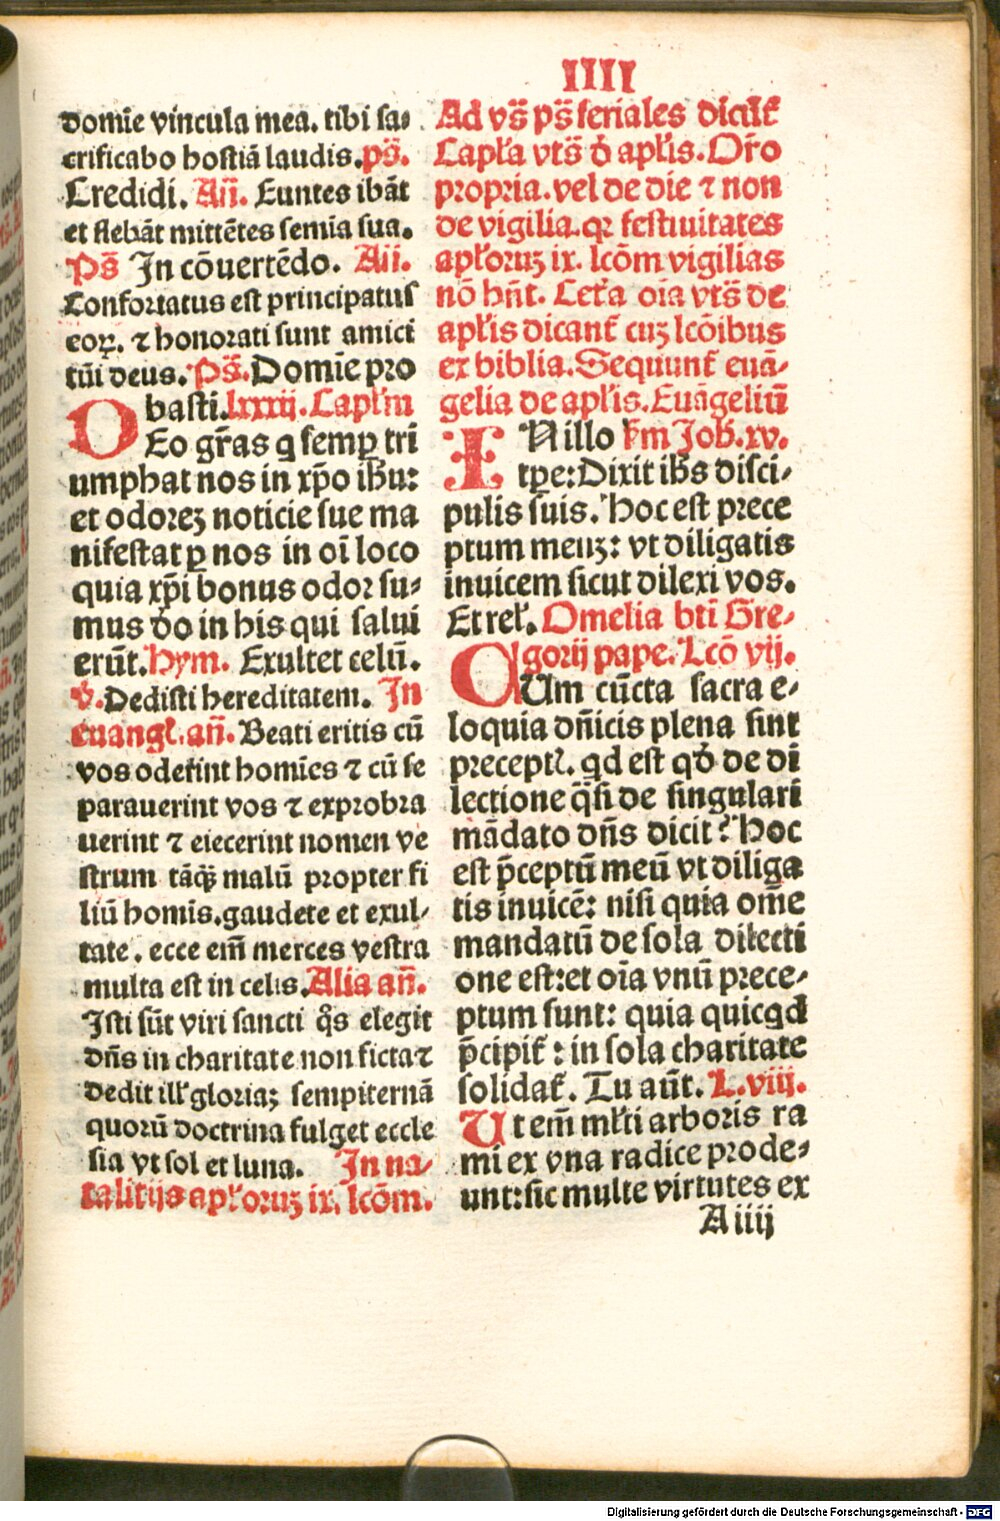 IIII
domīe vincula mea. tibi sa⸗
crificabo hostiā laudis. ps̄.
Credidi. Añ. Euntes ibāt
et flebāt mittētes semīa sua.
Ps̄ In cōuertēdo. Añ.
Confortatus est principatus
eoꝝ. ⁊ honorati sunt amici
tūi deus. Ps̄. Domīe pro
basti. lxxxij. Capl'm
DEo gr̄as q semꝑ tri
umphat nos in xp̄o ihū:
et odoreꝫ noticie sue ma
nifestat ꝑ nos in oī loco
quia xp̄i bonus odor su⸗
mus dō in his qui salui
erūt. Hym. Exultet celū.
v̄. Dedisti hereditatem. In
euangl'. añ. Beati eritis cū
vos oderint homīes ⁊ cū se
parauerint vos ⁊ exprobra
uerint ⁊ eiecerint nomen ve
strum tāq̄ꝫ malū propter fi
liū homīs. gaudete et exul⸗
tate. ecce em̄ merces vestra
multa est in celis. Alia añ.
Isti sūt viri sancti q̄s elegit
dn̄s in charitate non ficta ⁊
dedit ill' gloriaꝫ sempiternā
quorū doctrina fulget eccle
sia vt sol et luna. In na⸗
talitijs apl'oruꝫ ix. lcōm.
Ad vs̄ ps̄ feriales dicūt'
Capl'a vts̄ d̄ apl'is. Or̄o
propria. vel de die ⁊ non
de vigilia. qꝛ festiuitates
apl'oruꝫ ix. lcōm vigilias
nō hn̄t. Cet'a oīa vts̄ de
apl'is dicant' cuꝫ lcōibus
ex biblia. Sequunt' euā⸗
gelia de apl'is. Euāgeliū
IN illo s'm Joh. xv.
tꝑe: Dixit ihs̄ disci⸗
pulis suis. Hoc est prece
ptum meuꝫ: vt diligatis
inuicem sicut dilexi vos.
Et rel'. Omelia bti Gre⸗
gorij pape. Lcō vij.
CUm cūcta sacra e⸗
loquia dn̄icis plena sint
preceptꝭ. qd est qd̄ de di
lectione q̄si de singulari
mādato dn̄s dicit? Hoc
est p̄ceptū meū vt diliga
tis inuicē: nisi quia om̄e
mandatū de sola dilecti
one est: et oīa vnū prece⸗
ptum sunt: quia quicqd
p̄cipit': in sola charitate
solidat'. Tu aūt. L. viij.
Ut em̄ ml'ti arboris ra
mi ex vna radice prode⸗
unt: sic multe virtutes ex
A iiij
Digitalisierung gefördert durch die Deutsche Forschungsgemeinschaft - DFG